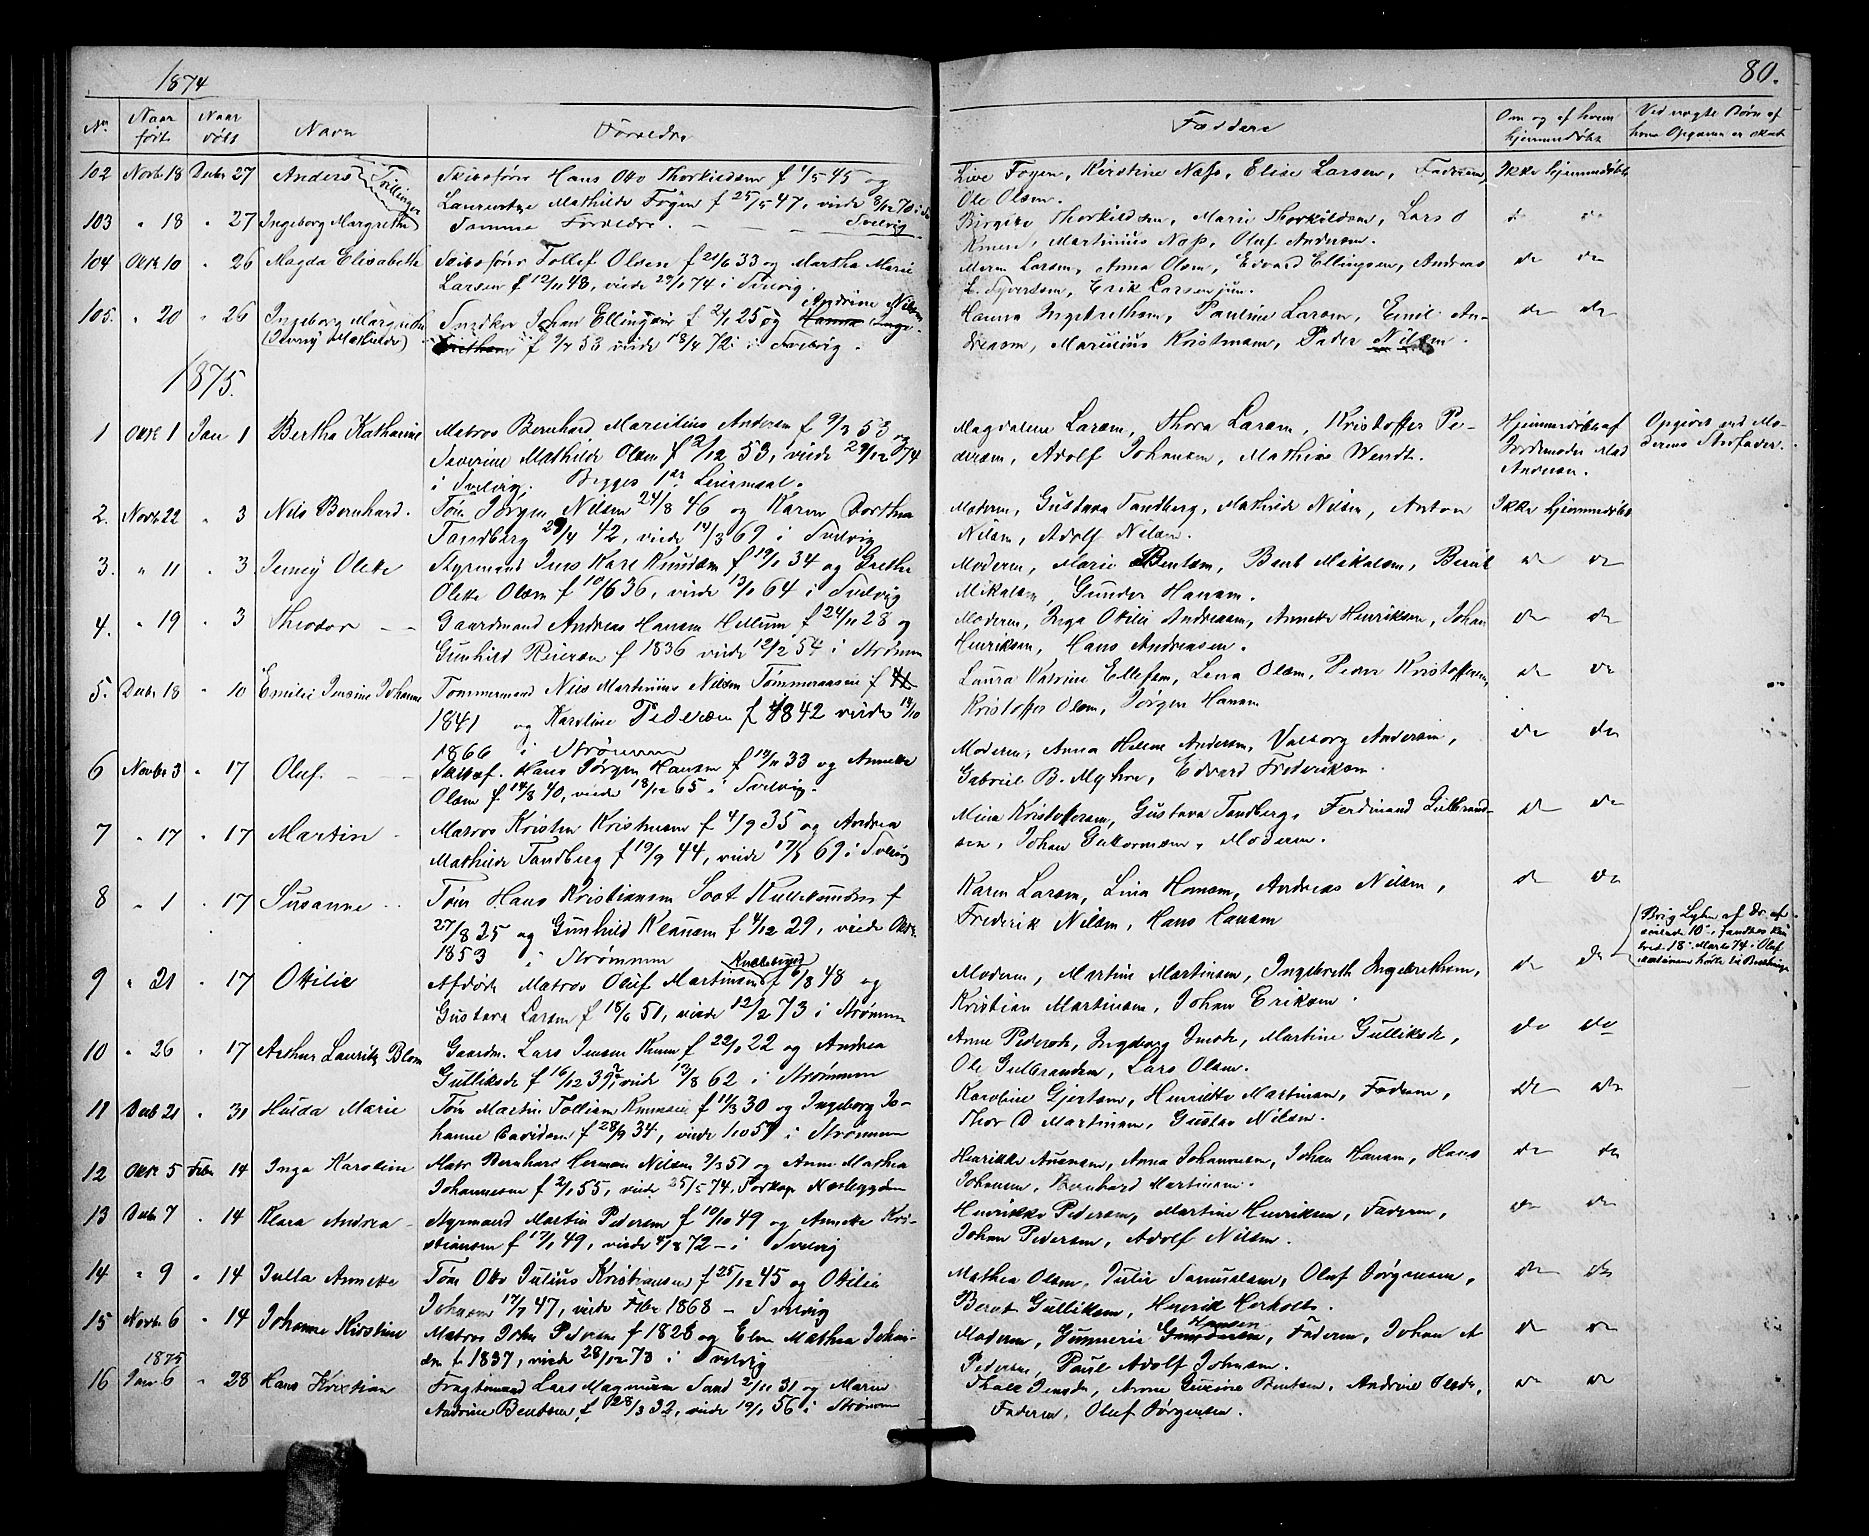 1874
80.
No Naar født Naar døbt Navn Forældre Faddere Om og af hvem hjemmedøbt Ved uægte Børn af
102 Novb 18 Decbr 27 Anders Tvillinger Skibsfører Hans Otto Thorkildsen f 1/5 45 og Fogen, Kirstine Næss, Elise Larsen, Faderen, Ikke hjemmedøbt
Mathilde Fogen f 25/5 47, viede 8/12 70 i Ole Olsen.
103 " 18 " 27 Ingeborg Margrethe Samme Forældre. — — — Svelvig Thorkildsen, Marie Thorkildsen, Lars O do do
Martinius Næss, Oluf Andersen.
104 Oktb 10 " 26 Magda Elisabeth Skibsfører Tollef Olsen f 21/6 33 og Martha Marie Maren Larsen, Anna Olsen, Edvard Ellingsen, Andreas do do
Larsen f 12/11 48, viede 29/1 74 i Svelvig. L. Syversen, Erik Larsen jun.
105. " 20 " 26 Ingeborg Margrethe Snedker Johan Ellingsen f 2/1 25 og Hanna Inge- Andrine Nilsen Hanna Ingebrethsen, Pauline Larsen, Emil An- do do
(Jenny Mathilde) f 9/4 53 viede 18/4 72 i Svelvig. dreasen, Marinius Kristensen, Peder Nilsen.
1875.
1 Oktb 1 Jan 1 Bertha Kathrine Matros Bernhard Marcelius Andersen f 9/2 53 og Magdalene Larsen, Thora Larsen, Kristoffer Pe- Hjemmedøbt af Opgives ved Mo-
Severine Mathilde Olsen f 2/12 53, viede 29/12 74 dersen, Adolf Johansen, Mathias Wendt. Jordemoder Mad derens Stedfader.
i Svelvig. Begges 1ste Leiermaal. Andersen.
2. Novb 22 " 3 Nils Bernhard. Tøm Jørgen Nilsen 24/8 46 og Karen Dorthea Moderen, Gustava Tandberg, Mathilde Nilsen, Anton Ikke hjemmedøbt
Tandberg 29/4 42, viede 14/3 69 i Svelvig Nilsen, Adolf Nilsen.
3. " 11 " 3 Jenny Olette Styrmand Jens Karl Knudsen f 19/1 34 og Grethe Moderen, Marie Bentsen, Bent Mikalsen, Berut do do
Olette Olsen f 10/6 36, viede 13/1 64 i Svelvig Mikalsen, Gunder Hansen.
4. " 19 " 3 Theodor — — Gaardmand Andreas Hansen Hellum f 24/11 28 og Moderen, Inga Otilie Andreasen, Annette Henriksen, Johan do do
Gunhild Reiersen f 1836 viede 12/2 54 i Strømmen Henriksen, Hans Andreasen.
5. Decbr 18 " 10 Emilie Jensine Johanne Tømmermand Nils Martinius Nilsen Tømmeraasen f Laura Katrine Ellefsen, Lena Olsen, Peder Kristoffersen, do do
1841 og Karoline Pedersen f 1842 viede 14/10 Kristoffer Olsen, Jørgen Hansen
1866 i Strømmen
6 Novbr 3 " 17 Oluf. — — Skibsf. Hans Jørgen Hansen f 14/11 33 og Annette Moderen, Anna Helene Andersen, Valborg Andersen, do do
Olsen f 14/8 40, viede 18/12 65 i Svelvig. Gabriel B. Myhre, Edvard Frederiksen.
7 " 17 " 17 Martin — Matros Kristen Kristensen f 4/9 35 og Andrea Mina Kristoffersen, Gustava Tandberg, Ferdinand Gulbrand- do do
Mathilde Tandberg f 19/9 44, viede 69 i Svelvig sen, Johan Guttormsen, Moderen.
8 " 1 " 17 Susanne — Tøm Hans Kristiansen f Karen Larsen, Lina Hansen, Andreas Nilsen, do do
27/8 25 og Gunhild Klausen f 4/12 29, viede Oktr Frederik Nilsen, Hans Hansen
1853 i Strømmen
9 " 21 " 17 Otilie Afdøde Matros Oluf Martinsen f 6/8 48 og Moderen, Martine Martinsen, Ingebreth Ingebrethsen, do do
Gustava Larsen f 18/6 51, viede 12/2 73 i Strømmen Kristian Martinsen, Johan Eriksen.
10 " 26 " 17 Arthur Lauritz Blom Gaardm. Lars Jensen f 22/1 22 og Andrea Anne Pedersdt, Ingeborg Jensdt, Martine Gulliksdt, do do
Gulliksdt f 16/12 39, viede 13/8 62 i Strømmen Ole Gulbrandsen, Lars Olsen.
11 Decb 21 " 31 Hulda Marie Tøm Martin f 11/3 30 og Ingeborg Jo- Karoline Gjertsen, Henriette Martinsen, Faderen, do do
hanne Davidsen f 28/9 34, viede i Strømmen Thor D Martinsen, Gustav Nilsen.
12 Oktb 5 Febr 14 Inga Karoline Matr Bernhard Herman Nilsen 9/3 51 og Anne Mathea Henrikke Anensen, Anna Johannesen, Johan Hansen, Hans do do
Johannesen f 2/1 55, viede 25/5 74, Johansen, Bernhard Martinsen.
13 Decb 7 " 14 Klara Andrea — Styrmand Martin Pedersen f 10/10 49 og Annette Kri- Henrikke Pedersen, Martine Henriksen, Faderen, do do
stiansen f 17/1 49, viede 4/8 72 — i Svelvig Johan Pedersen, Adolf Nilsen.
14 " 9 " 14 Julla Annette Tøm Otto Julius Kristiansen f 25/12 45 og Otilie Mathea Olsen, Julie Samuelsen, Oluf Jørgensen, do do
Johnsen 17/7 47, viede Febr 1868 — Svelvig Berut Gulliksen, Henrik Herholdt.
15 Novb 6 " 14 Johanne Kirstine Matros John Pedersen f 1828 og Elen Mathea Johan- Moderen, Gunnerie Hansen, Faderen, Johan A do do
sen f 1837, viede 28/12 73 i Svelvig Pedersen, Paul Adolf Johnsen.
1875
16 Jan 6 " 28 Hans Kristian Fragtemand Lars Magnussen Sand 2/11 31 og Maren Jensdt, Anne Bentsen, Andrine Olsdt, do do
Andrine Bentsen f 28/3 32, viede 19/1 56 i Strømmen Faderen, Oluf Jørgensen.